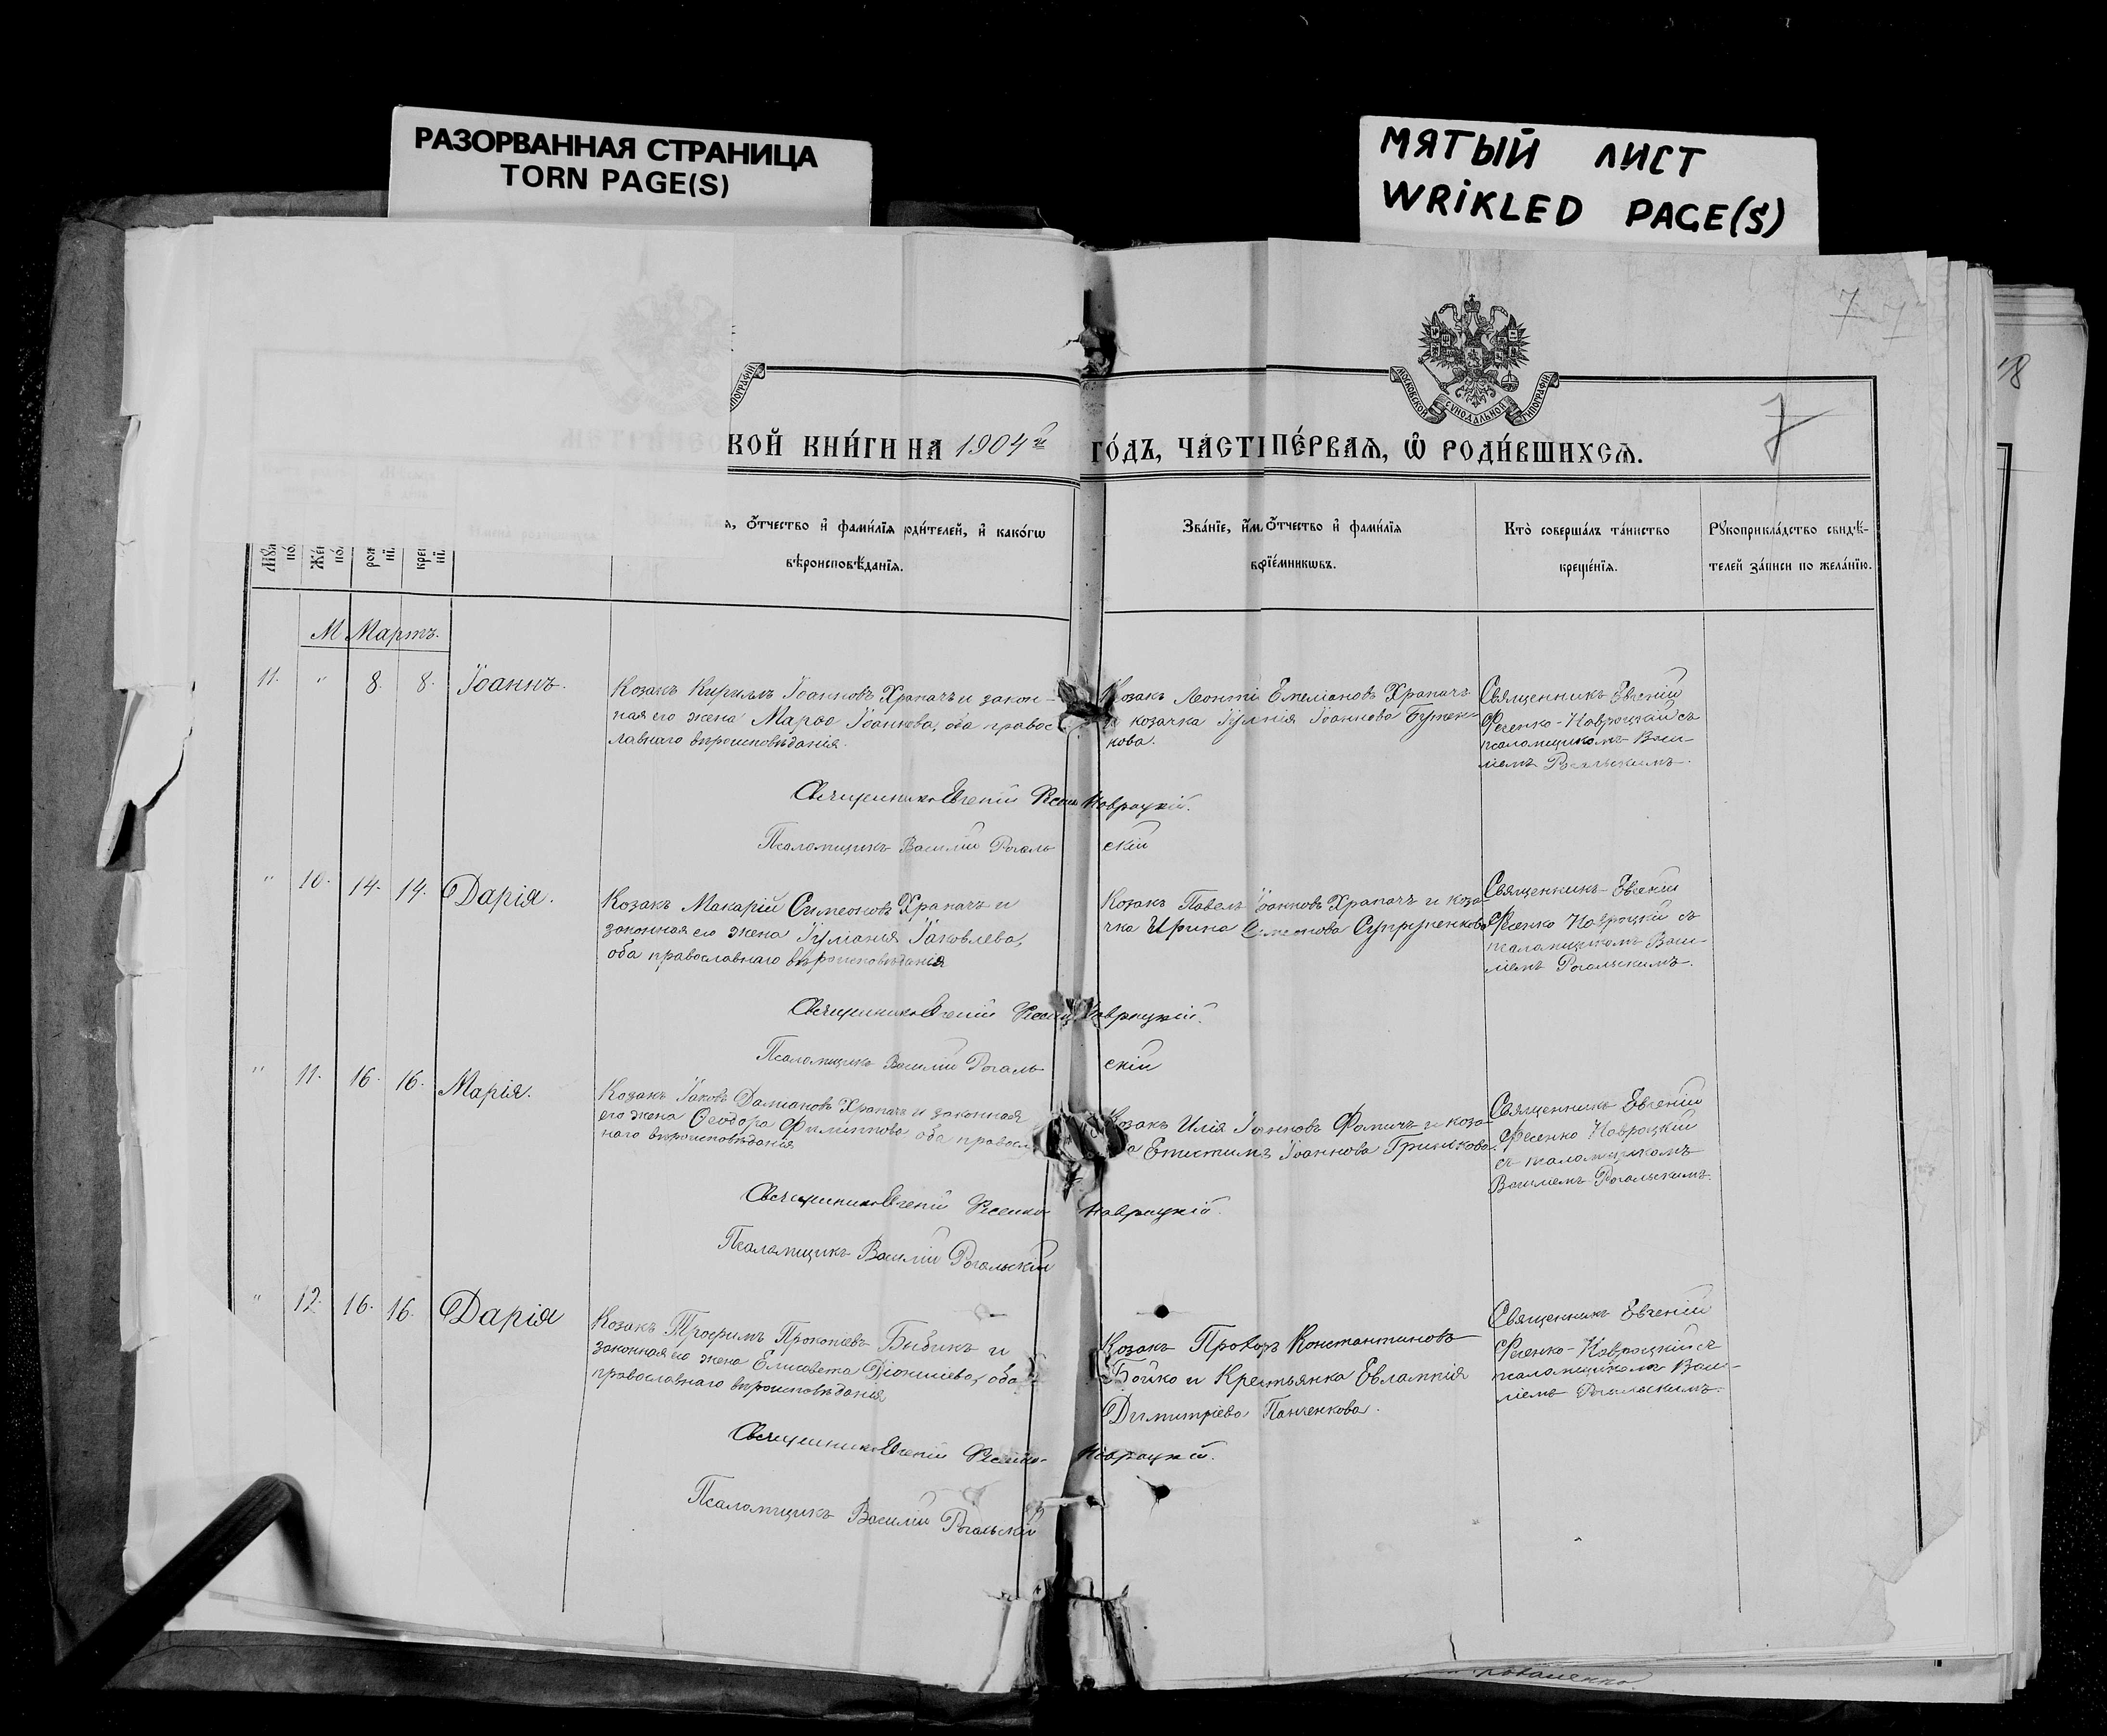 РАЗОРВАННАЯ СТРАНИЦА
TORN PAGE(S)
МЯТЫЙ ЛИСТ
WRiKLED PAGE(S)
7
18
МОСКОВСКОЙ СѴНОДАЛЬНОЙ ТИПОГРАФІИ
7
КОЙ КНИ́ГИ НА 1904й ГО́ДЪ, ЧА́СТЬ ПЕ́РВАѦ, Ѡ РОДИ́ВШИХСѦ.
Ѻтчество и фами́лїѧ роди́телей, и како́гѡ
вѣроисповѣ́данїѧ.
Зва́нїе, Ѻтчество и фами́лїѧ
воспрїе́мникѡвъ.
Кто̀ соверша́лъ та́инство
креще́нїѧ.
Рꙋкоприкла́дство свидѣ́-
телей за́писи по жела́нїю.
Мартъ.
11. " 8. 8. Іоаннъ.
Козакъ Кириллъ Іоанновъ Храпачъ и закон-
ная его жена Марфа Іоаннова, оба правос-
лавнаго вѣроисповѣданія.
Козакъ Леонтій Емеліановъ Храпачъ
и козачка Іуліанія Іоаннова Бутен-
кова.
Священникъ Евгеній
Фесенко-Навроцкій съ
псаломщикомъ Васи-
ліемъ Рогальскимъ.
Священникъ Евгеній Фесенко Навроцкій.
Псаломщикъ Василій Рогальскій
" 10. 14. 14. Дарія.
Козакъ Макарій Симеоновъ Храпачъ и
законная его жена Іуліанія Іаковлева,
оба православнаго вѣроисповѣданія
Козакъ Павелъ Іоанновъ Храпачъ и коза-
чка Ирина Симеонова Супруненкова
Священникъ Евгеній
Фесенко Навроцкій съ
псаломщикомъ Васи-
ліемъ Рогальскимъ.
Священникъ Евгеній Фесенко Навроцкій.
Псаломщикъ Василій Рогальскій
" 11. 16. 16. Марія.
Козакъ Іаковъ Даміановъ Храпачъ и законная
его жена Ѳеодора Филиппова оба правосл
наго вѣроисповѣданія
Козакъ Илія Іоанновъ Фомичъ и коза-
Іоаннова
Священникъ Евгеній
Фесенко Навроцкій
съ псаломщикомъ
Василіемъ Рогальскимъ.
Священникъ Евгеній Фесенко Навроцкій.
Псаломщикъ Василій Рогальскій
" 12. 16. 16. Дарія
Козакъ Трофимъ Прокопіевъ Бибикъ и
законная его жена Елисавета Діонисіева, оба
православнаго вѣроисповѣданія
Козакъ Прохоръ Константиновъ
Бойко и Крестьянка Евлампія
Димитріева Панченкова.
Священникъ Евгеній
Фесенко-Навроцкій съ
псаломщикомъ Васи-
ліемъ Рогальскимъ.
Священникъ Евгеній Фесенко-Навроцкій.
Псаломщикъ Василій Рогальскій